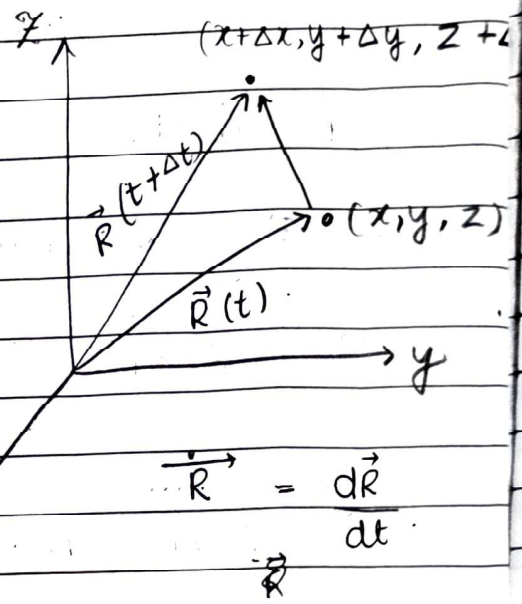 Z
(x+Δx, y+Δy, Z+
R⃗ (t+Δt)
(x, y, z)
R⃗ (t)
y
Ṙ⃗ = dR⃗
dt
R⃗